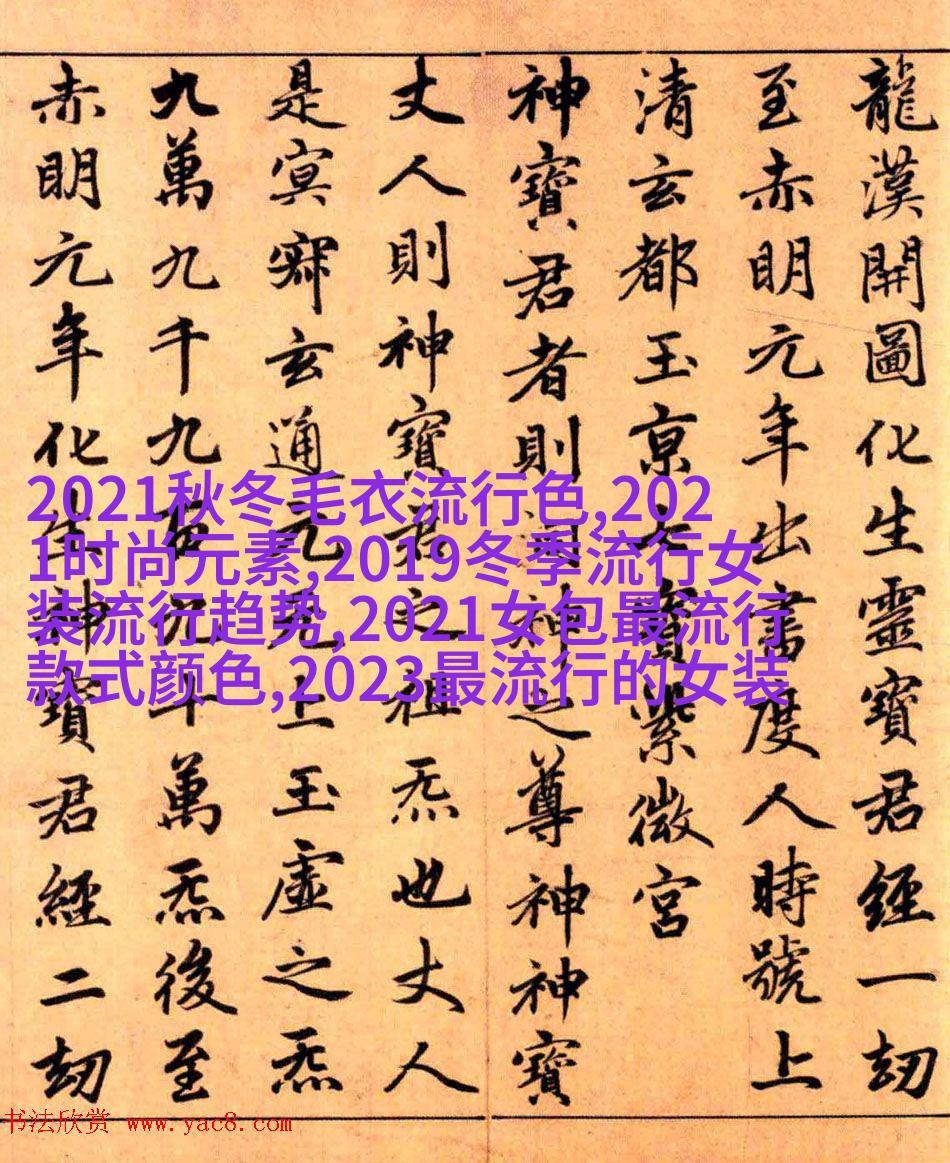 龍漢開圖化生靈寶君經一劫
至赤明元年出書度人時號上
清玄都玉京七寶紫微宮
神寶君者則洞神之尊神神寶
丈人則神神寶之祖炁也丈人
是冥寂玄通元无上玉虛之炁
九萬九千九百九十萬炁後至
赤明元年化生神寶君經二劫
2021秋冬毛衣流行色,202
1时尚元素,2019冬季流行女
装流行趋势,2021女包最流行
款式颜色,2023最流行的女装
书法欣赏 www.yac8.com